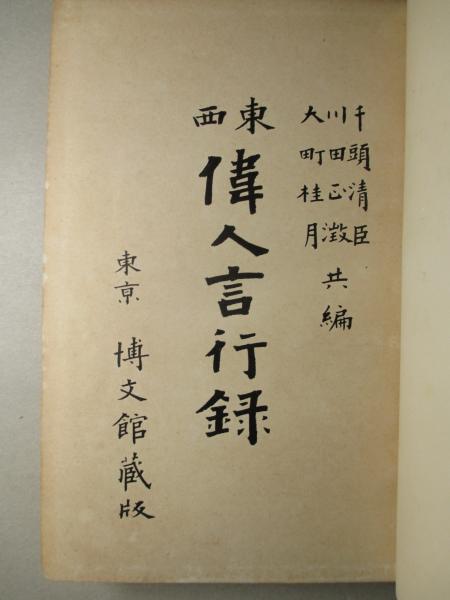 千頭清臣
川田正澂
大町桂月
共編
東西
偉人言行録
東京
博文館蔵版